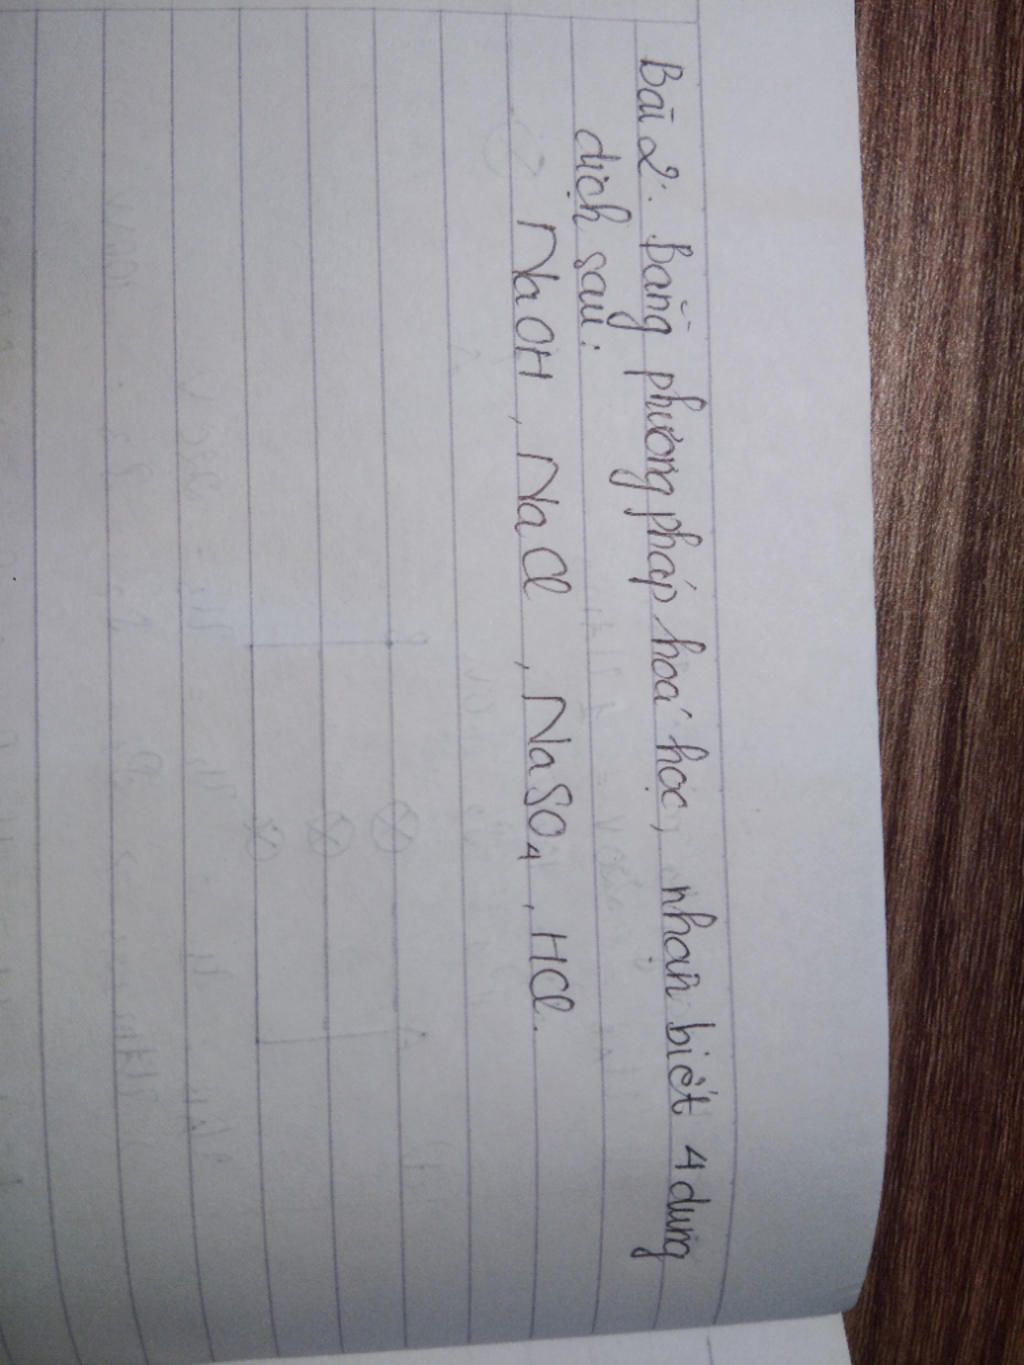 Bài 2. Bằng phương pháp hoá học, nhận biết 4 dung
dịch sau:
NaOH, NaCl, NaSO₄, HCl.